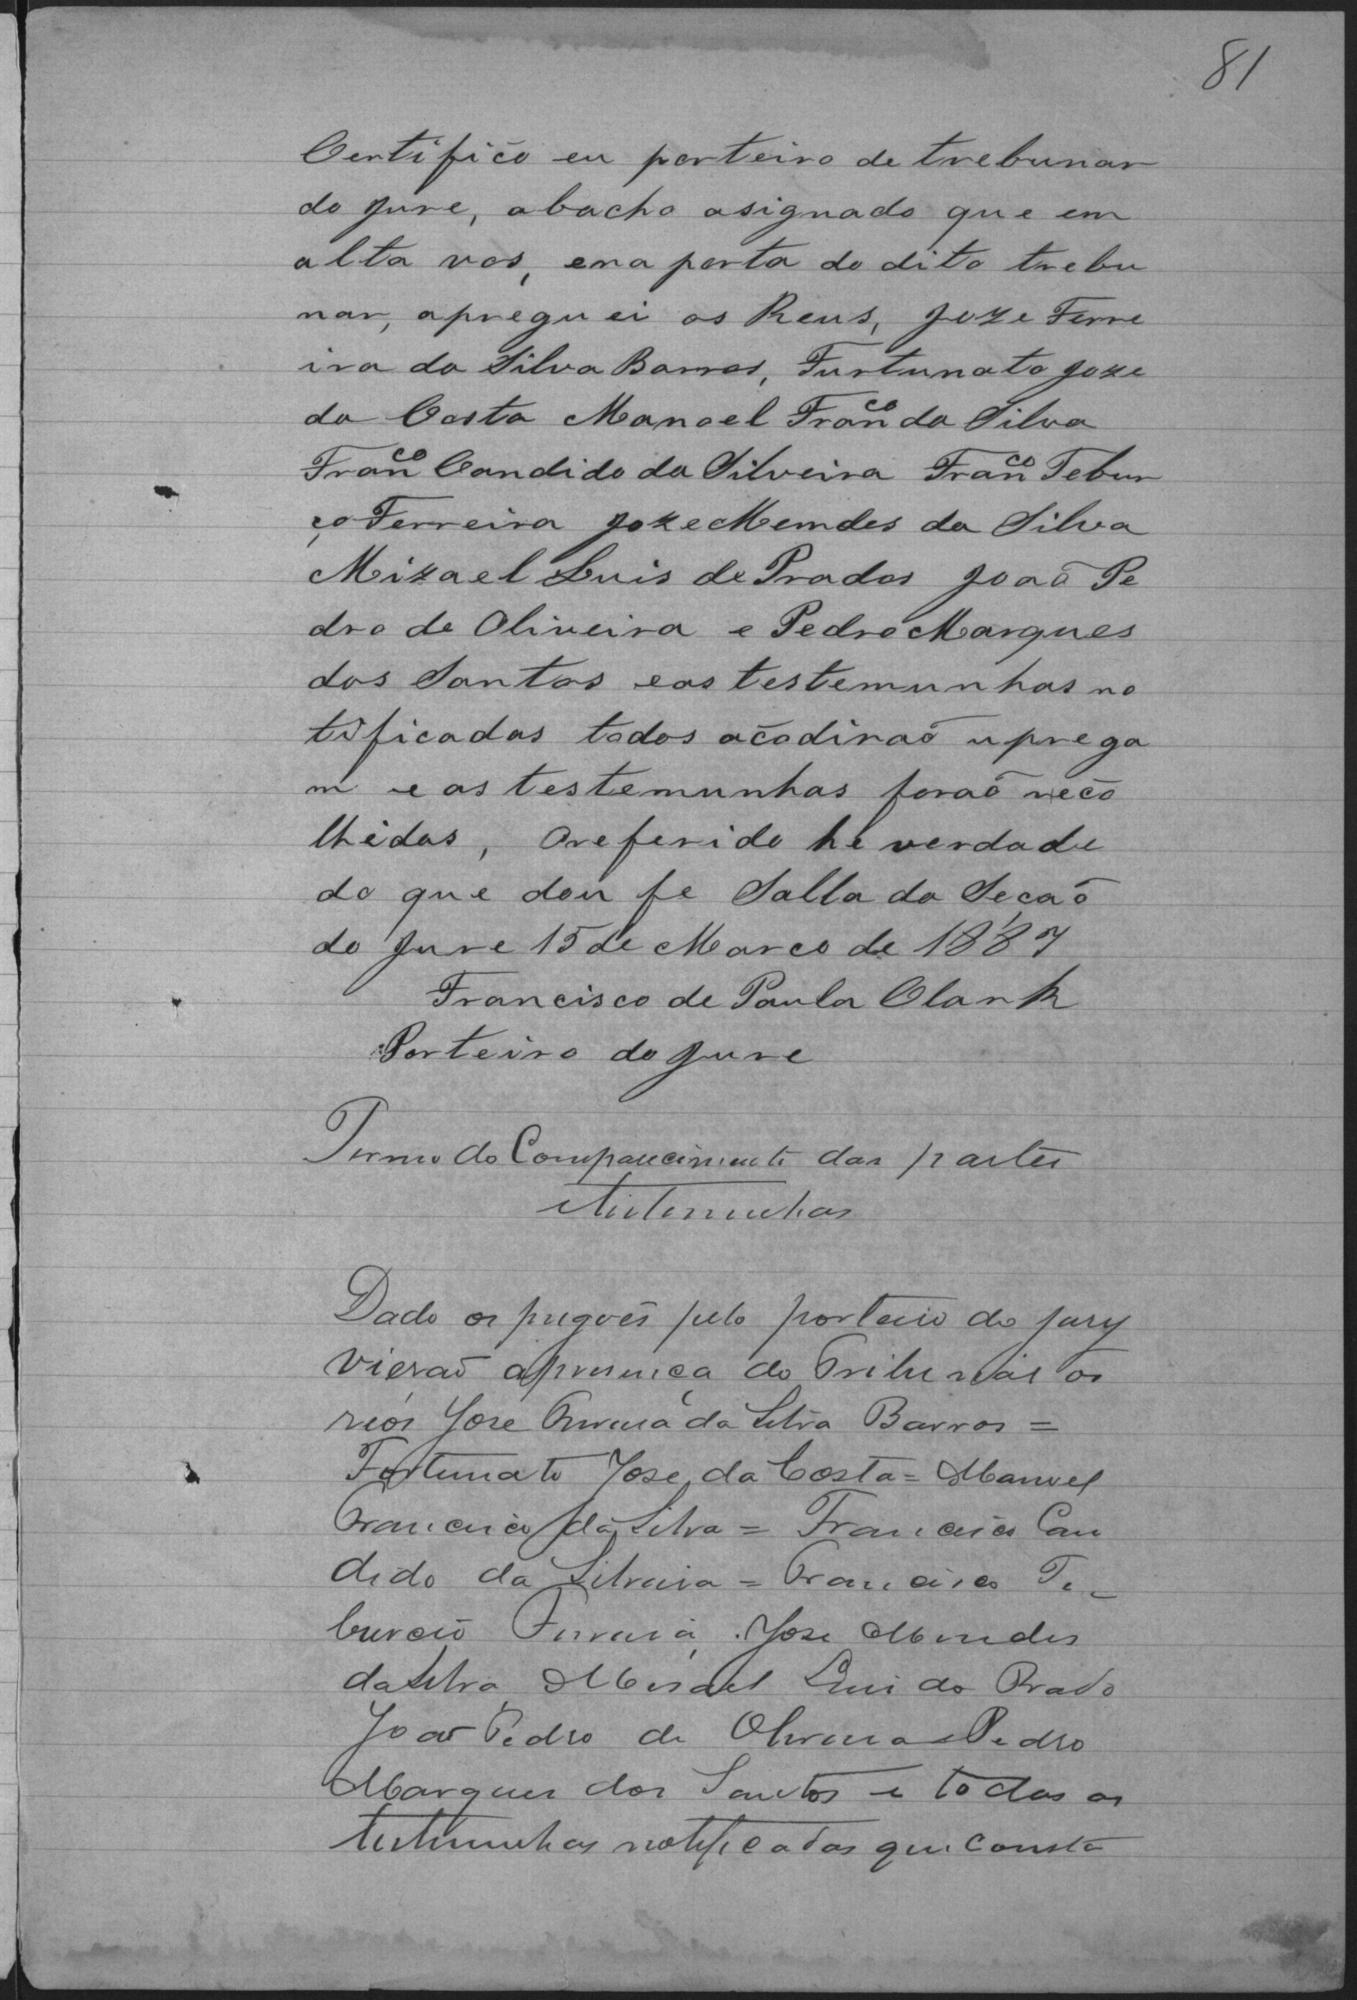 81
Certifico eu porteiro de trebunar
do Jure, abacho asignado que em
alta vos, ena porta do dito trebu
nar, apreguei os Reus, Joze Ferre
ira da Silva Barros, Furtunato Joze
da Costa Manoel Franco da Silva
Franco Candido da Silveira Franco Tebur
ço Ferreira Joze Memdes da Silva
Mizael Luis de Prados João Pe
dro de Oliveira e Pedro Marques
dos Santos e as testemunhas no
tificadas todos acodirão u prega
m e as testemunhas forão reco
lhidas, O referido he verdade
do que dou fe Salla da Seção
do Jure 15 de Marco de 1887
Francisco de Paula Clark
Porteiro do Jure
Termo do Comparecimento das partes
e testemunhas
Dado os pregões pelo porteiro do jury
vierão a presença do Tribunal os
reos José Ferreira da Silva Barros =
Fortunato Jose da Costa = Manoel
Francisco da Silva = Francisco Can
dido da Silveira = Francisco Te-
burcio Ferreira Jose Mendes
da Silva Misael Luis do Prado
João Pedro de Oliveira e Pedro
Marques dos Santos e todas as
testemunhas notificadas que consta